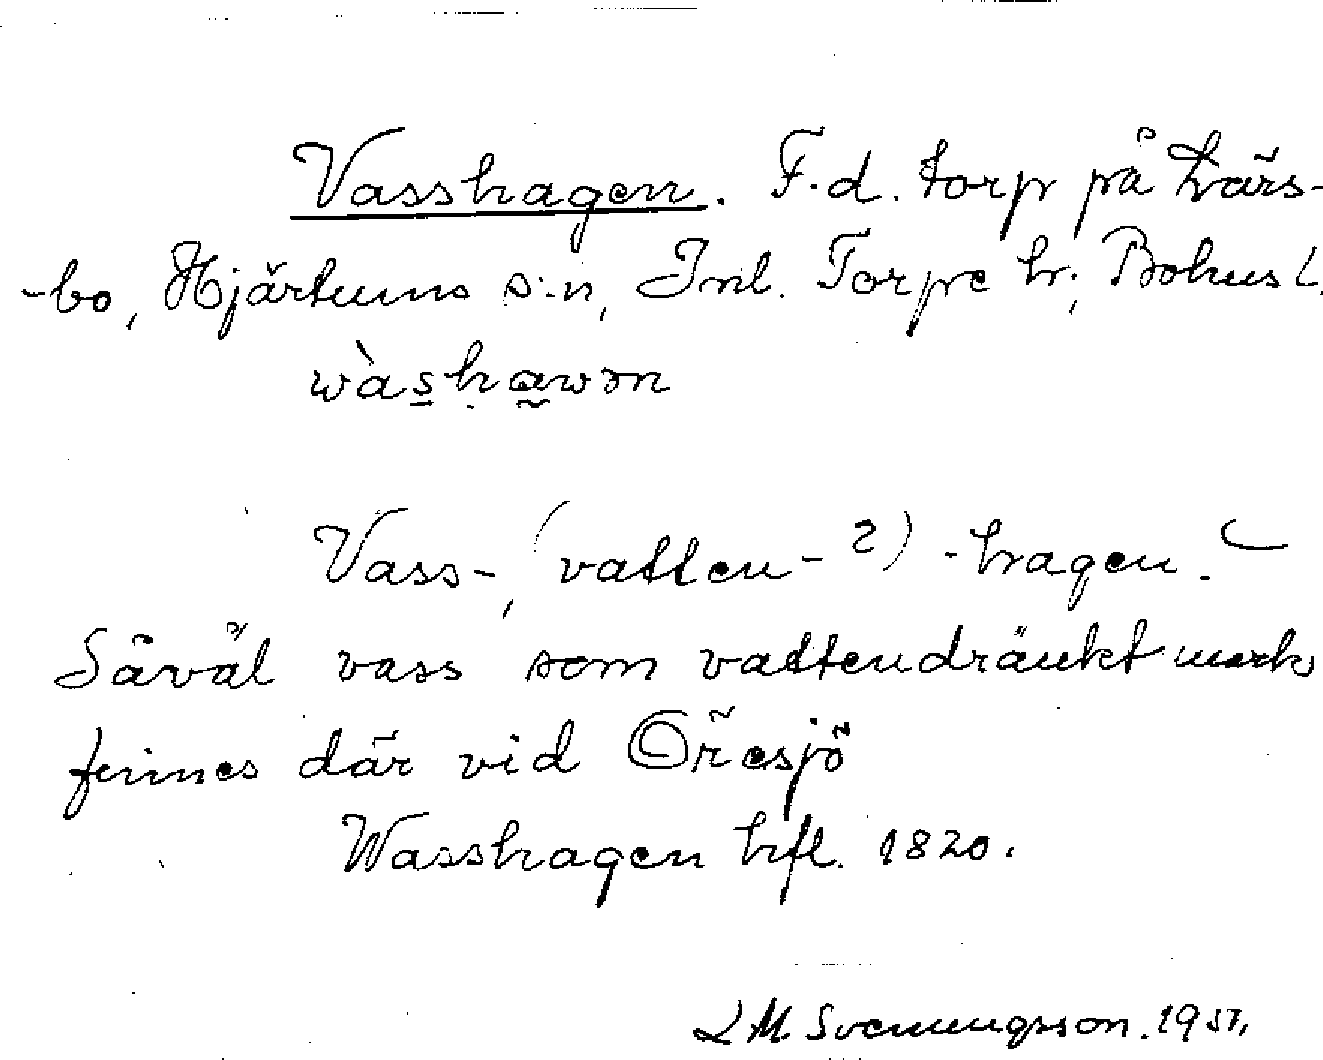 Vasshagen. F.d. torp på Lärs-
-bo, Hjärtums s:n, Inl. Torpe hr; Bohus l.
wàshawən
Vass-, (vatten- ?) -hagen.
Såväl vass som vattendränkt mark
finnes där vid Öresjö
Wasshagen hfl. 1820.
L M Svenungsson. 1951.